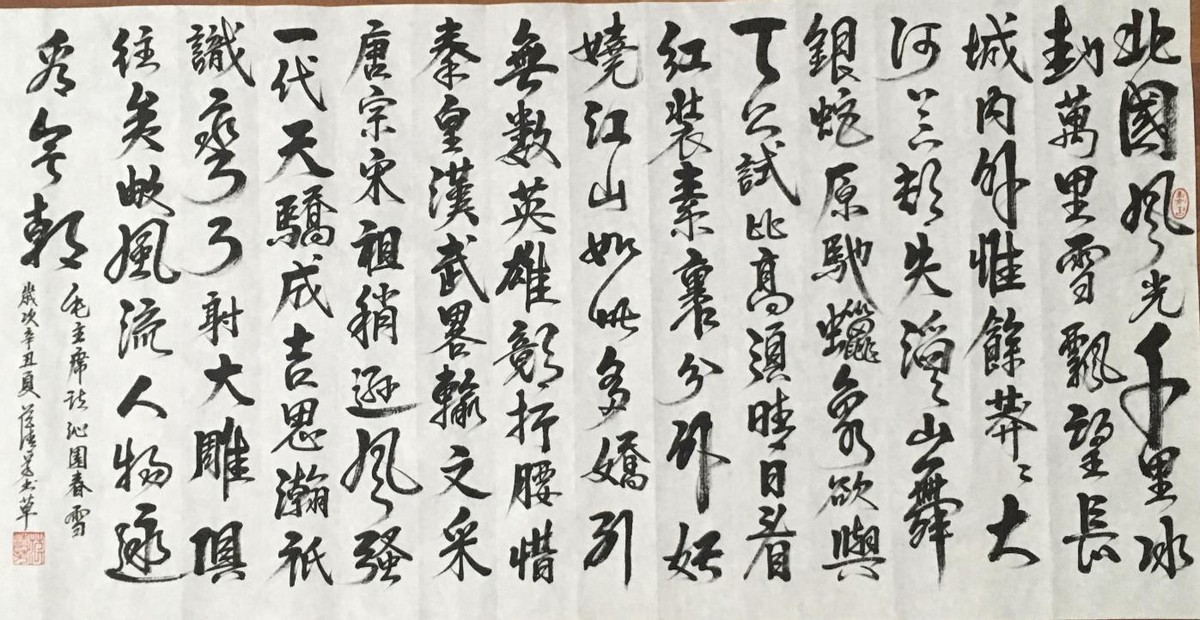 北國風光千里冰
封萬里雪飄望長
城内外惟餘莽〻大
河上下頓失滔〻山舞
銀蛇原馳蠟象欲與
天公試比高須晴日看
紅裝素裹分外妖
嬈江山如此多嬌引
無數英雄競折腰惜
秦皇漢武畧輸文采
唐宗宋祖稍遜風騷
一代天驕成吉思瀚祇
識彎弓射大雕俱
往矣數風流人物還
看今朝
毛主席詞沁園春雪
歲次辛丑夏草